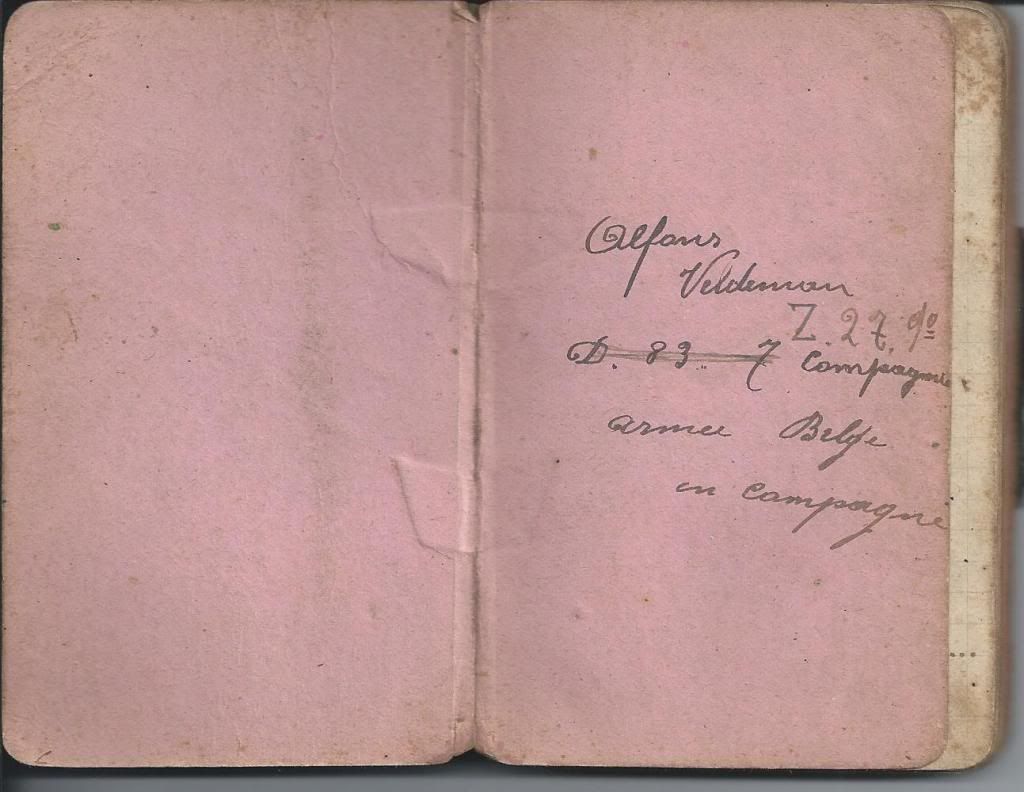 Alfons
Veldeman
Z. 27. do
D. 83. 7 Compagnie
armee Belge
en Campagne